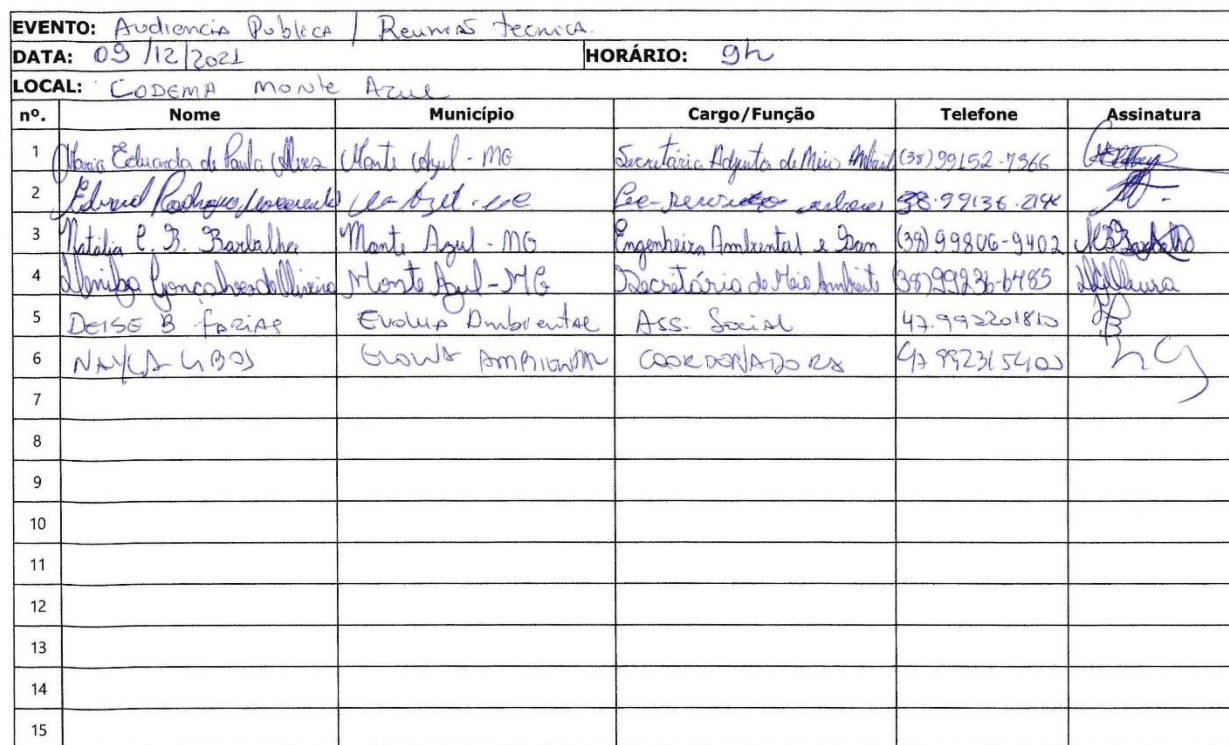 EVENTO: Audiencia Publica / Reunião Tecnica.
DATA: 09/12/2021 HORÁRIO: 9h
LOCAL: CODEMA Monte Azul
nº. Nome Município Cargo/Função Telefone Assinatura
1 Maria Eduarda de Paula Alves Monte Azul - MG Secretária Adjunta de Meio Ambient (38) 99152-7366
2 Edvard Rodrigues 38.99136.
3 Natália C. B. Barbalho Monte Azul - MG Engenheira Ambiental e San (38) 99806-9402
4 Gonçalves de Oliveira Monte Azul - MG Secretária de Meio Ambiente (38) 99236-6485
5 DEISE B FARIAS Evolua Ambiental Ass. Social 47.992201810
6 AMBIENTAL COORDENADORA 47 992315400
7
8
9
10
11
12
13
14
15